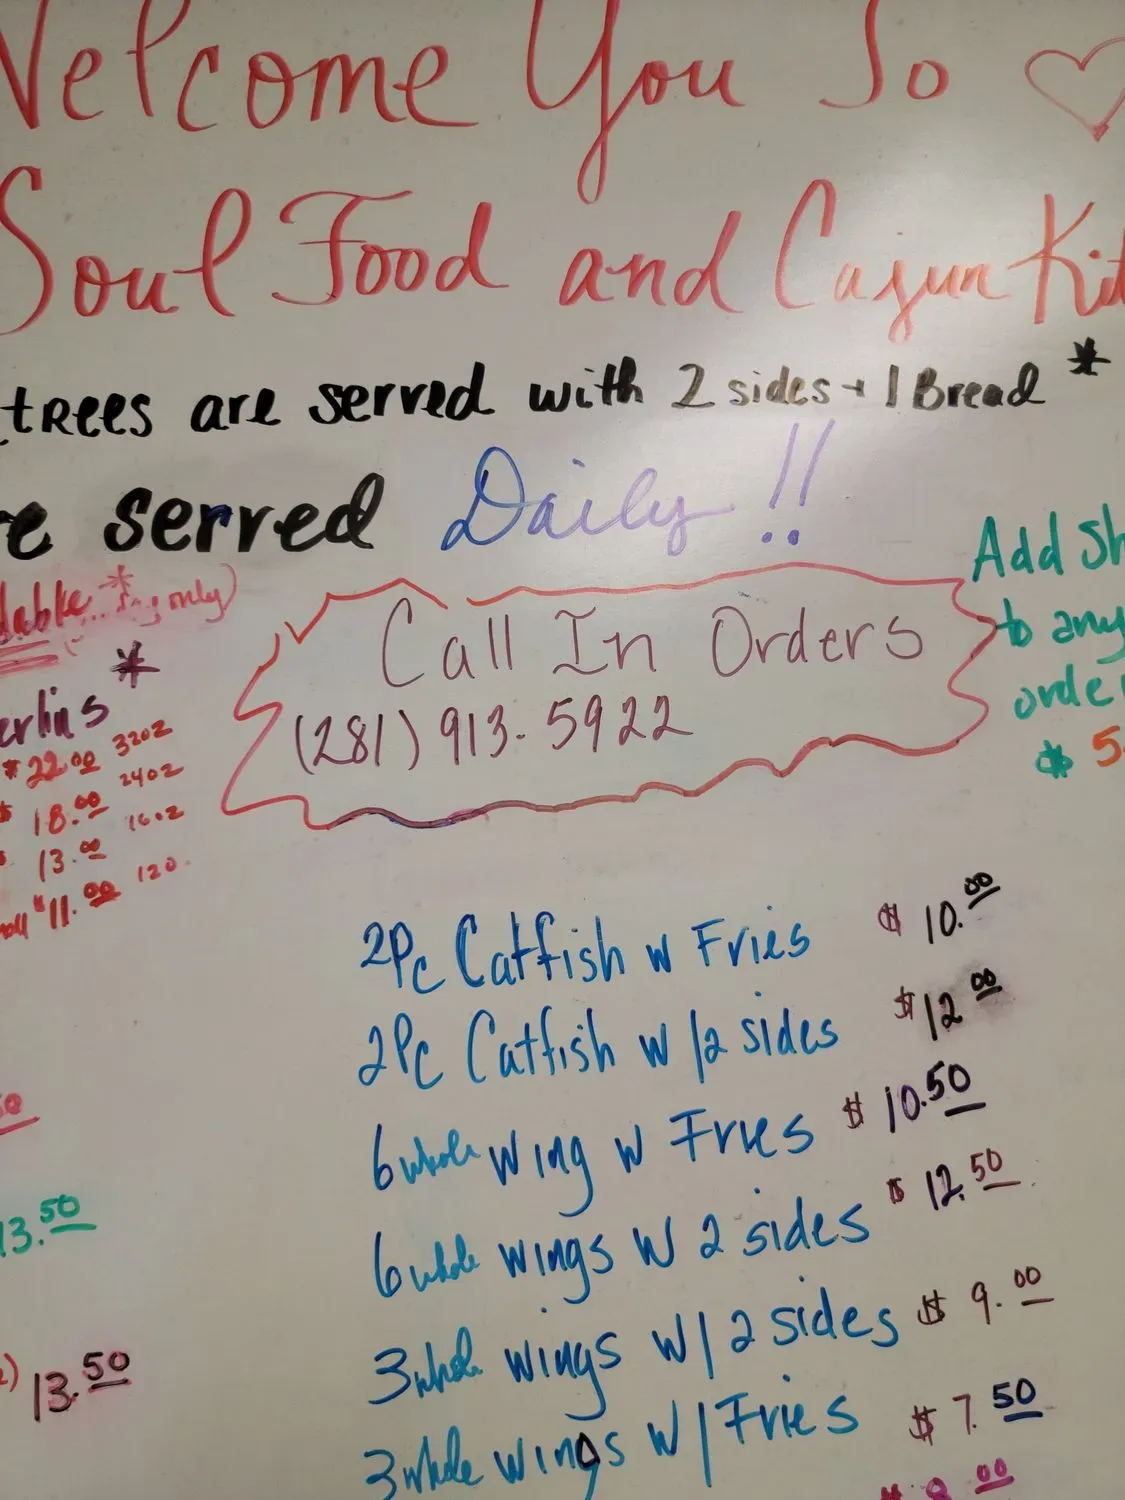 Welcome You To
Soul Food and Cajun Kit
trees are served with 2 sides + 1 Bread *
e served Daily!!
Add Sh
to any
orde
$ 5
dable... * only)
*
erlins
$22.00 32oz
$ 18.00 24oz
$ 13.00 16oz
all $11.00 12o
Call In Orders
(281) 913-5922
2Pc Catfish w Fries $ 10.00
2Pc Catfish w/2 sides $12.00
6 whole wing w Fries $ 10.50
6 whole wings w 2 sides $ 12.50
3 whole wings w/2 sides $ 9.00
3 whole wings w/Fries $ 7.50
50
13.50
13.50